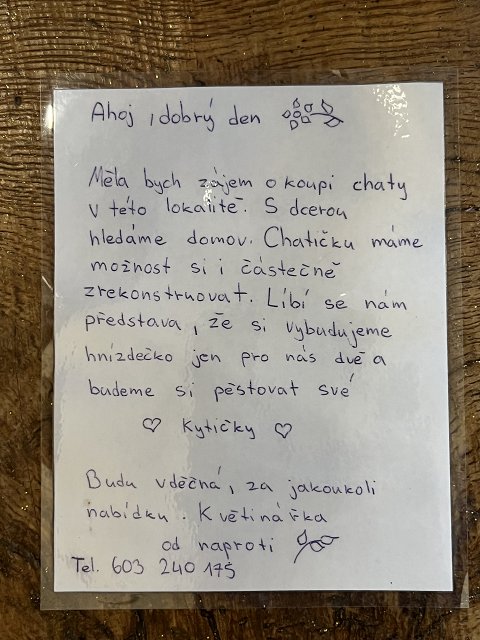 Ahoj, dobrý den
Měla bych zájem o koupi chaty
v této lokalitě. S dcerou
hledáme domov. Chatičku máme
možnost si i částečně
zrekonstruovat. Líbí se nám
představa, že si vybudujeme
hnízdečko jen pro nás dvě a
budeme si pěstovat své
♡ Kytičky ♡
Budu vděčná, za jakoukoli
nabídku. Květinářka
od naproti
Tel. 603 240 175